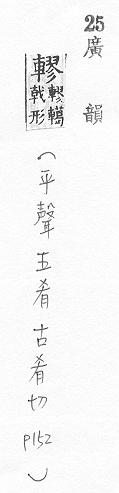 25
廣韻
轇轇轕
戟形
(平聲五肴古肴切 p152)